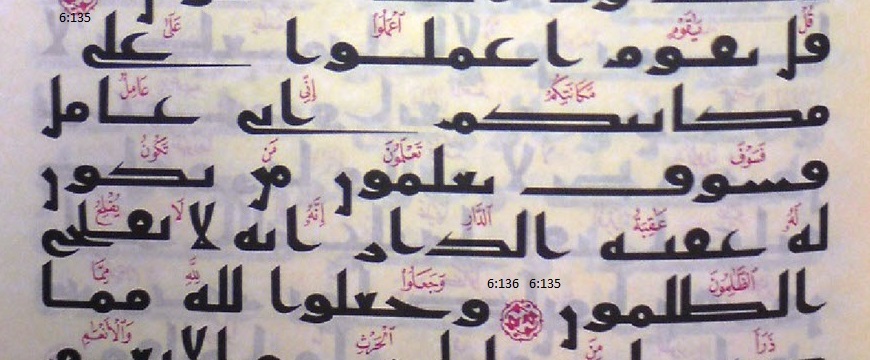 6:135
قُلْ يَٰقَوْمِ ٱعْمَلُوا۟ عَلَىٰ
قل يقوم اعملوا على
مَكَانَتِكُمْ إِنِّى عَامِلٌ
مكانتكم انى عامل
فَسَوْفَ تَعْلَمُونَ مَن تَكُونُ
فسوف تعلمون من تكون
لَهُۥ عَٰقِبَةُ ٱلدَّارِ إِنَّهُۥ لَا يُفْلِحُ
له عقبه الدار انه لا يفلح
ٱلظَّٰلِمُونَ 6:135 6:136 وَجَعَلُوا۟ لِلَّهِ مِمَّا
الظلمون وجعلوا لله مما
ذَرَأَ مِنَ ٱلْحَرْثِ وَٱلْأَنْعَٰمِ